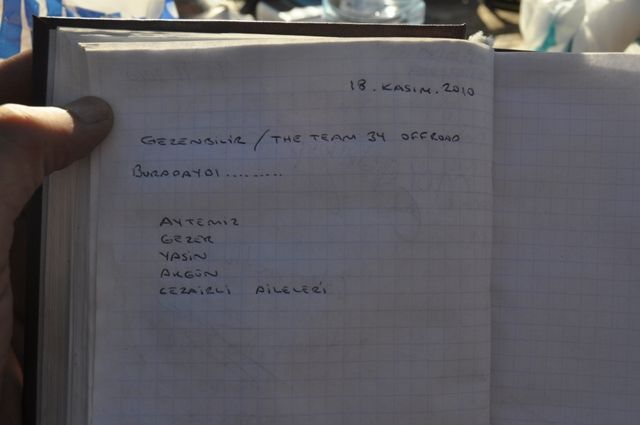 18. KASIM. 2010
GEZENBİLİR / THE TEAM 34 OFFROAD
BURADAYDI.........
AYTEMİZ
GEZER
YASİN
AKGÜN
CEZAİRLİ AİLELERİ